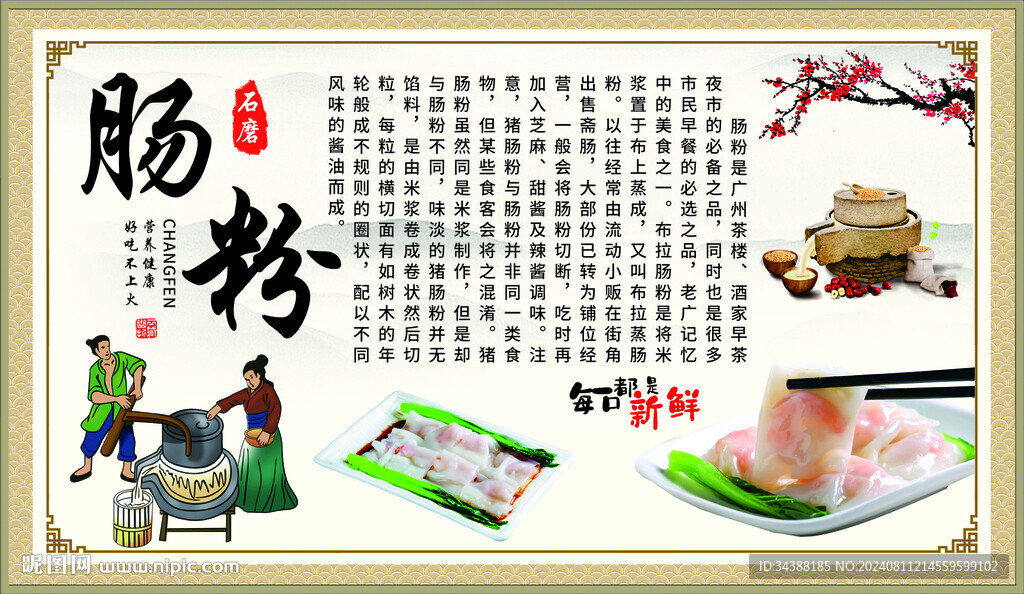 肠粉
石磨
CHANGFEN
营养健康
好吃不上火
肠粉是广州茶楼、酒家早茶
夜市的必备之品，同时也是很多
市民早餐的必选之品，老广记忆
中的美食之一。布拉肠粉是将米
浆置于布上蒸成，又叫布拉蒸肠
粉。以往经常由流动小贩在街角
出售斋肠，大部份已转为铺位经
营，一般会将肠粉切断，吃时再
加入芝麻、甜酱及辣酱调味。注
意，猪肠粉与肠粉并非同一类食
物，但某些食客会将之混淆。猪
肠粉虽然同是米浆制作，但是却
与肠粉不同，味淡的猪肠粉并无
馅料，是由米浆卷成卷状然后切
粒，每粒的横切面有如树木的年
轮般成不规则的圈状，配以不同
风味的酱油而成。
每日都是新鲜
昵图网 www.nipic.com
ID:34388185 NO:20240811214559599102